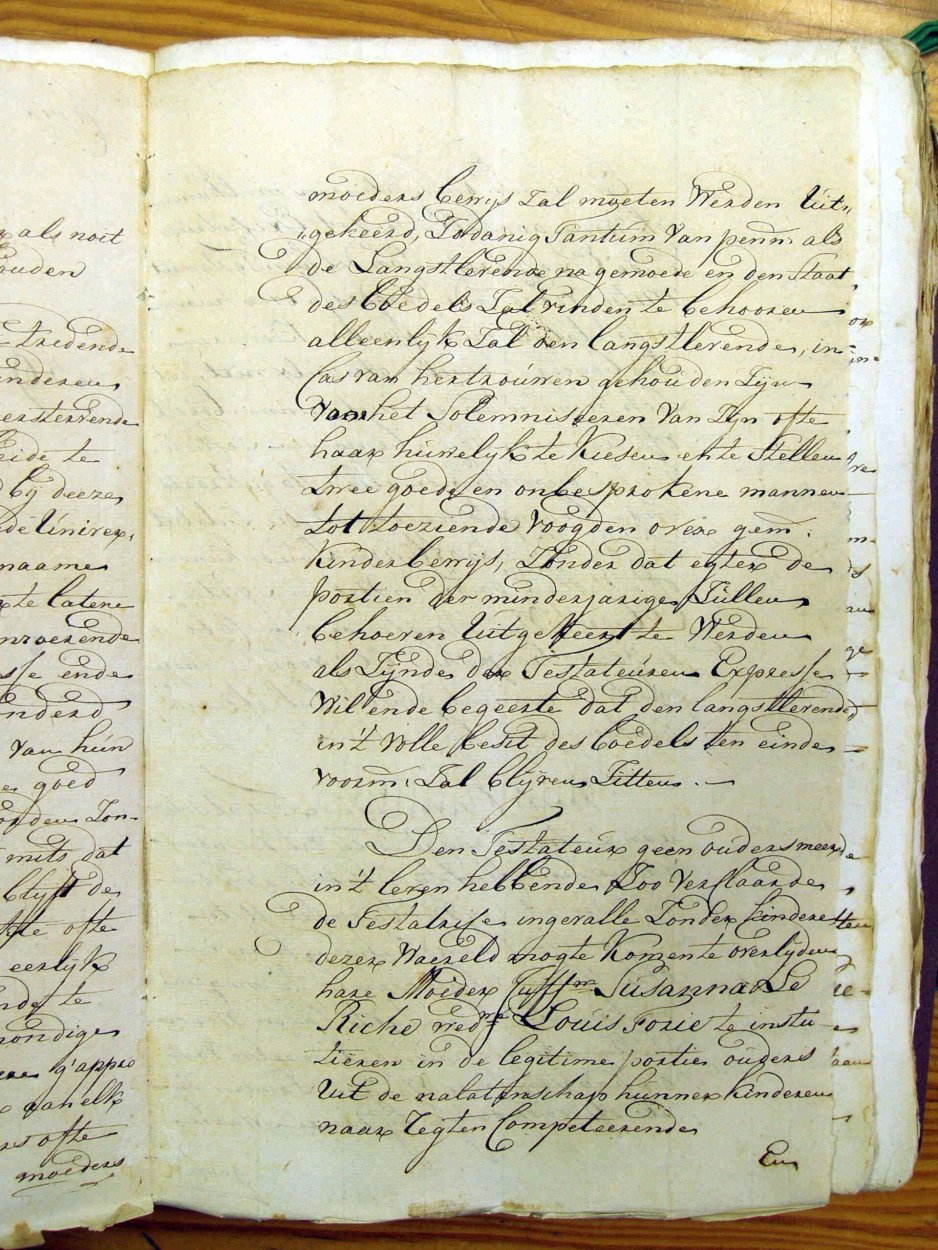 als noit
ouden
tredende
nderen
verstervende
eide te
bij deeze
de Univer„
naame
te latene
nroerende
sse ende
nderd
van hun
goed
orden Zon-
mits dat
blijft de
ofte
eerlijk
ende te
rondige
g'appro
gahelk
rs ofte
moeders
moeders bewijs Zal moeten Werden Uit„
„gekeerd, Zodanig Santum Van penn: als
de Langstlevende na gemoede en den Staat
des boedels Zal vinden te behooren
alleenlijk Zal den langstlevende, in
Cas van hertrouwen gehouden Zijn
voor het Solemniseren Van Zijn ofte
haar huwelijk te Kiesen en te Stellen
twee goede en onbesprokene mannen
tot toeziende voogden over gem:
kinderbewijs, Zonder dat egter de
portien der minderjarige Zullen
behoeren Uitgekeert te Werden
als Zijnde der Testateuren Expresse
Wil ende begeerte dat den langstlevende
in't volle besit des boedels ten einde
voorm: Zal blijven Zitten. —
Den Testateur geen ouders meer
in't leven hebbende Zoo verklaarde
de Testatrise ingevalle Zonder kindere
dezer Waereld mogte Komente overlijden
hare Moeder Juffw. Susanna Le
Riche wedwe. Louis Forie te institu-
tueren in de legitime portie ouders
Uit de nalatenschap hunner kinderen
naar Regten Competeerende
En